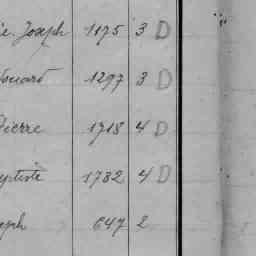 ie. Joseph 1175 3 D
douard 1297 3 D
Pierre 1718 4 D
aptiste 1782 4 D
seph 647 2